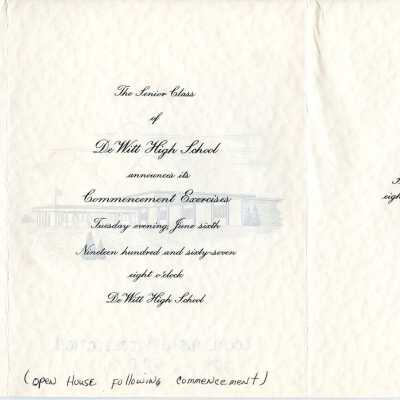 The Senior Class
of
DeWitt High School
announces its
Commencement Exercises
Tuesday evening, June sixth
Nineteen hundred and sixty-seven
eight o'clock
DeWitt High School
(open House following commencement)